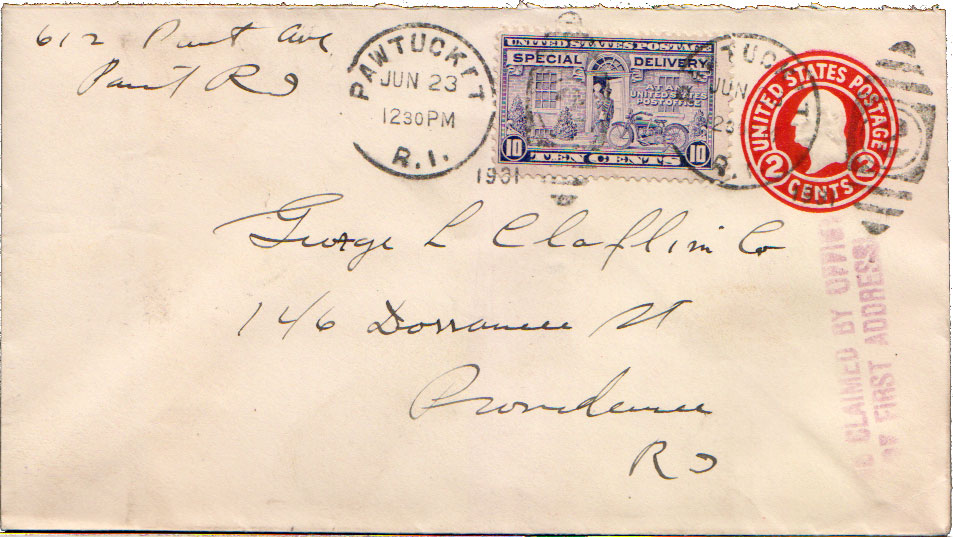 612 Pawt Ave
Pawt RI
PAWTUCKET
JUN 23
1230PM
R.I.
1931
UNITED STATES POSTAGE
SPECIAL DELIVERY
AT ANY
UNITED STATES
POST OFFICE
10 TEN CENTS 10
TUCK
JUN
R.I.
UNITED STATES POSTAGE
2 CENTS 2
George L Claflin Co
146 Dorrance St
Providence
RI
CLAIMED BY OFFICE
OF FIRST ADDRESS